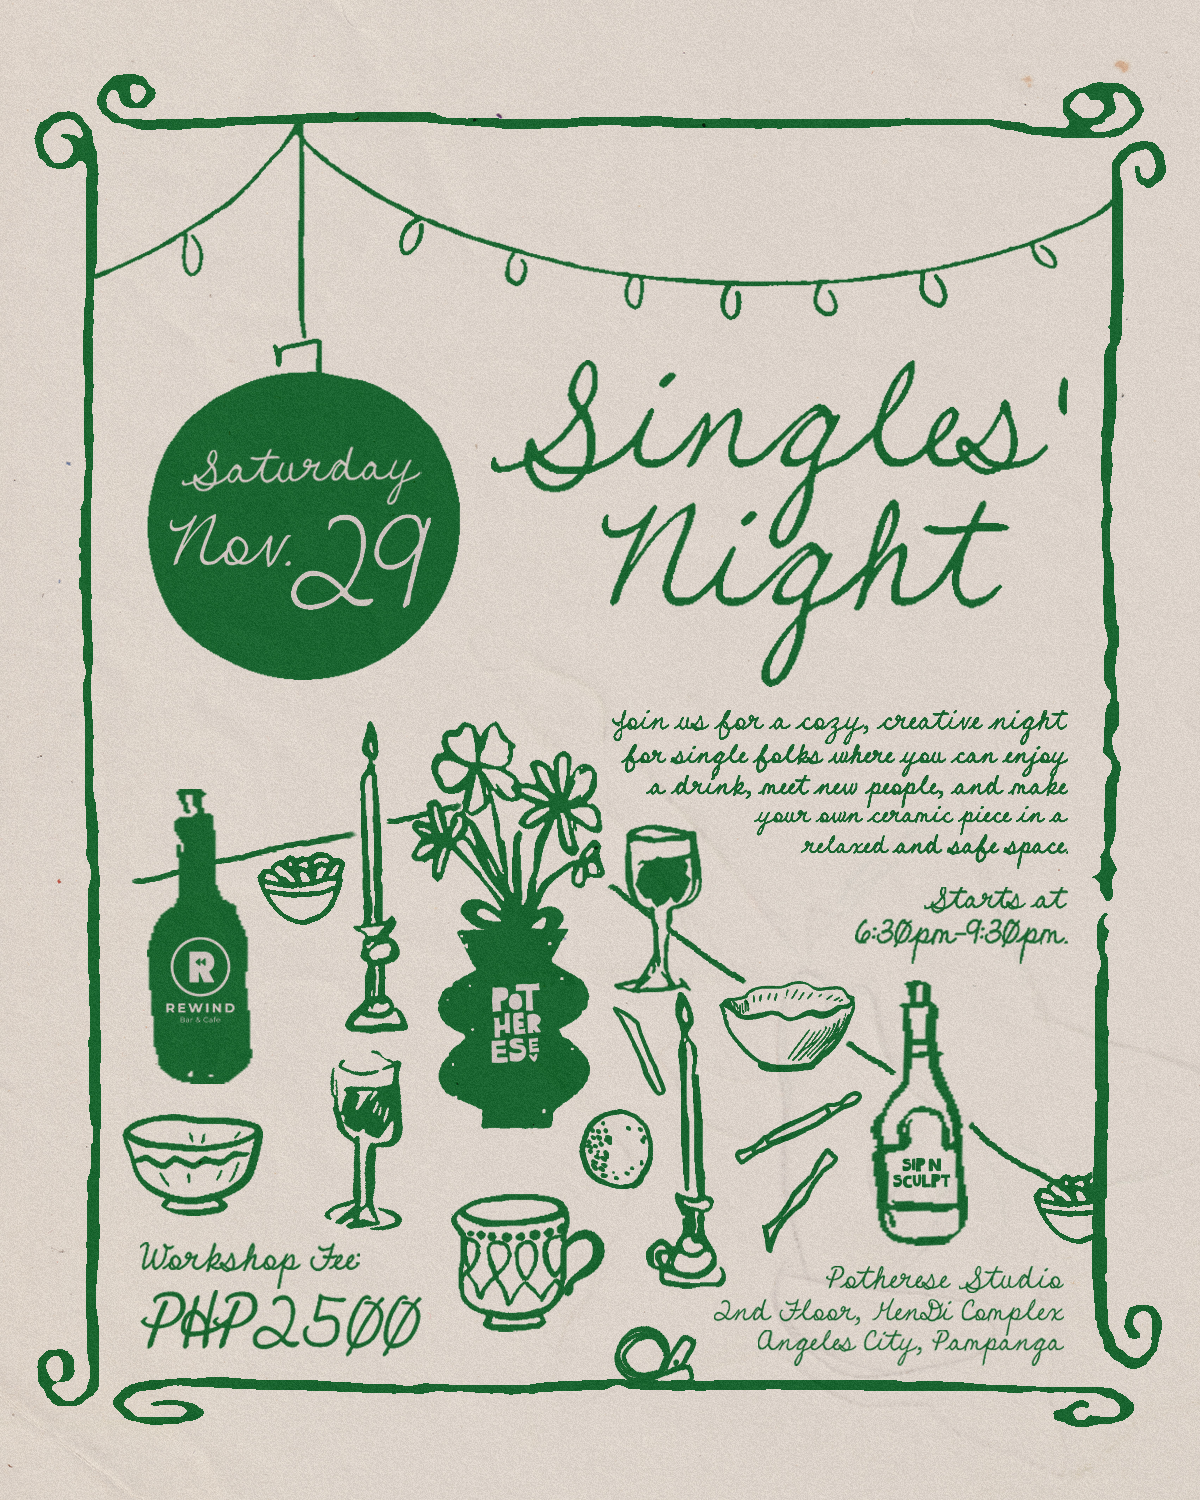 Saturday
Nov. 29
Singles'
Night
Join us for a cozy, creative night
for single folks where you can enjoy
a drink, meet new people, and make
your own ceramic piece in a
relaxed and safe space.
Starts at
6:30pm-9:30pm.
R
REWIND
Bar & Cafe
POT
HER
ESE
SIP N
SCULPT
Workshop Fee:
PHP 2500
Potherese Studio
2nd Floor, MenDi Complex
Angeles City, Pampanga